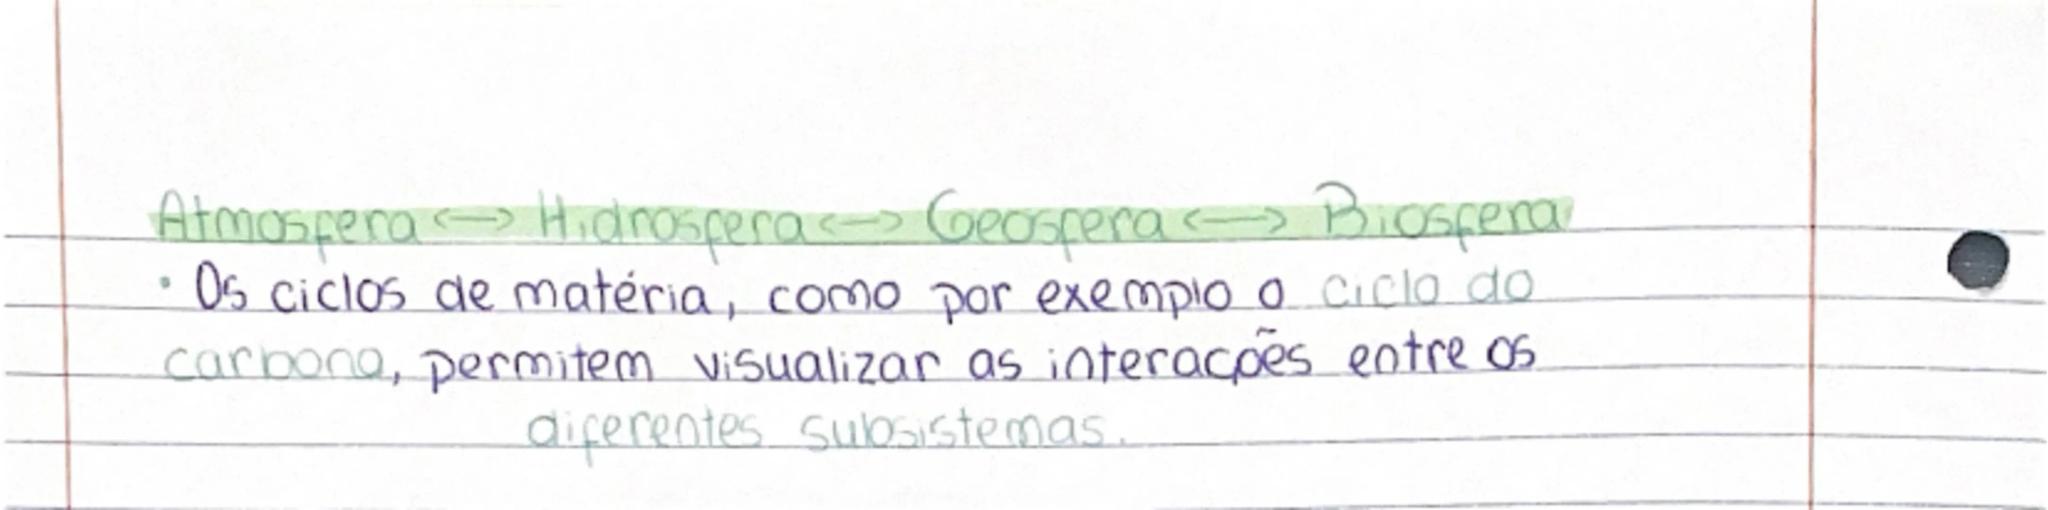 Atmosfera <-> Hidrosfera <-> Geosfera <-> Biosfera
· Os ciclos de matéria, como por exemplo o ciclo do
carbono, permitem visualizar as interações entre os
diferentes subsistemas.